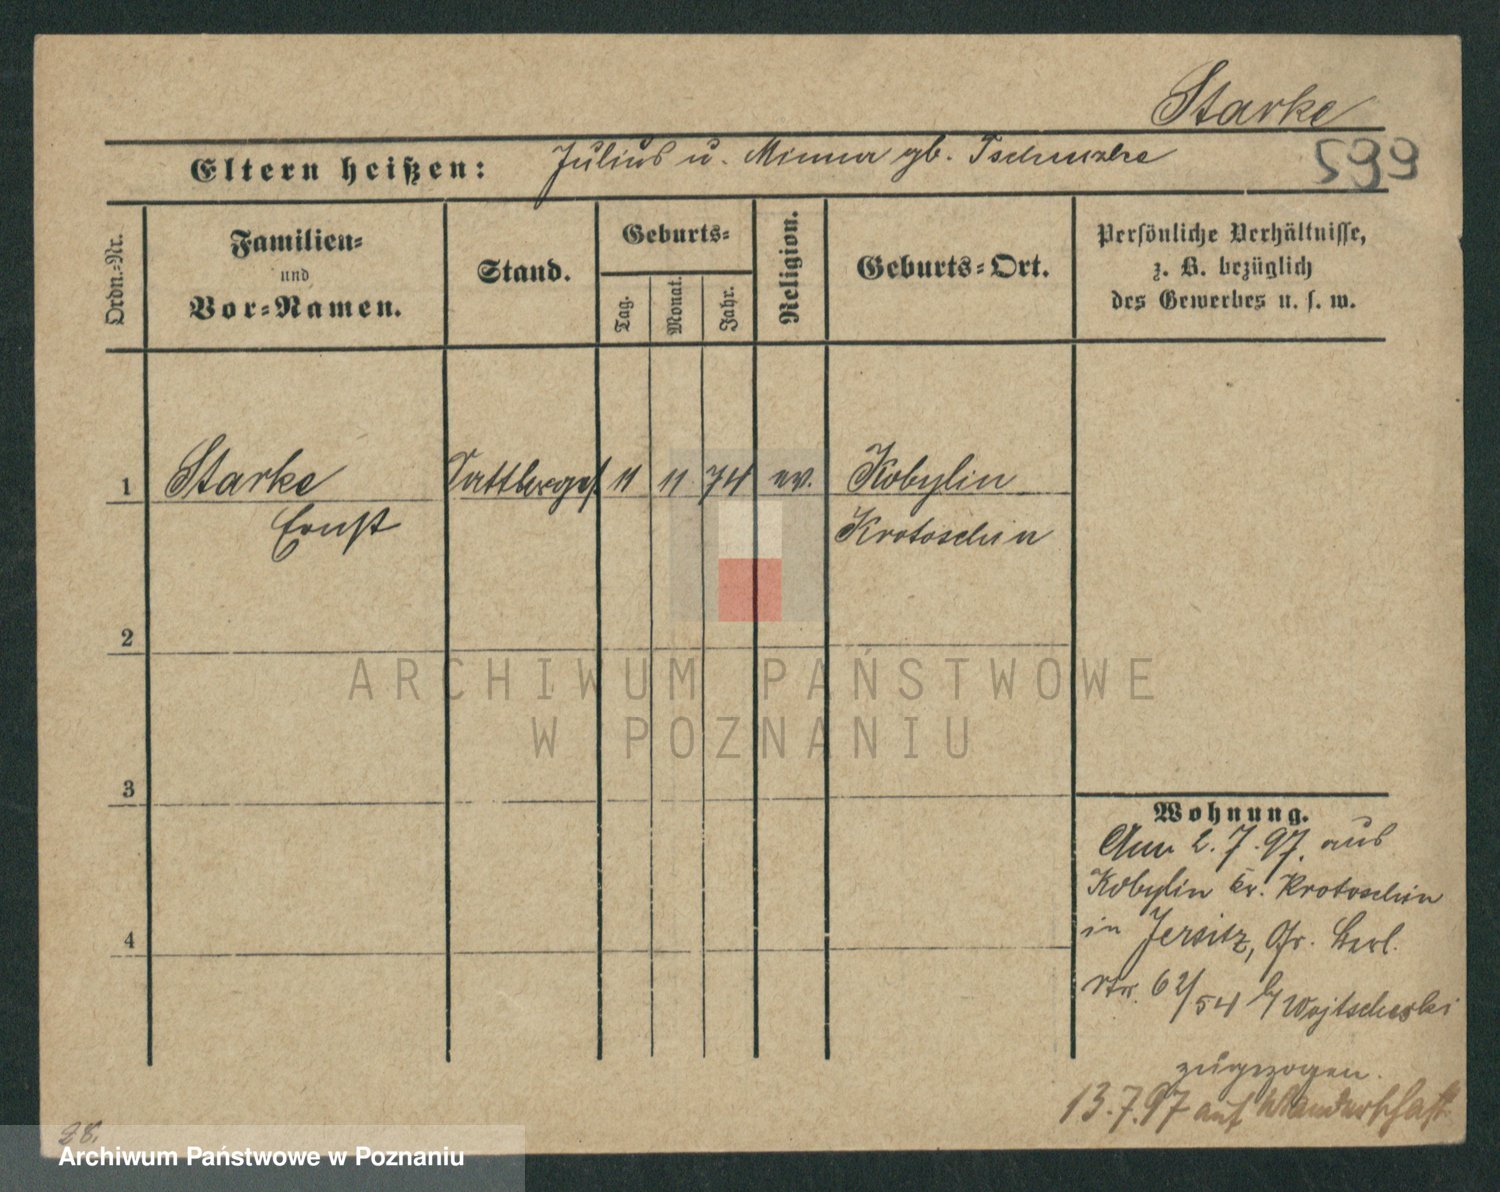 Starke
Eltern heißen: Julius u. Minna gb.
599
Ordn.=Nr.
Familien=
und
Vor=Namen.
Stand.
Geburts=
Tag.
Monat.
Jahr.
Religion.
Geburts=Ort.
Persönliche Verhältnisse,
z. B. bezüglich
des Gewerbes u. s. w.
1 Starke 11 11 74 ev. Kobylin
Ernst Krotoschin
2
3
4
ARCHIWUM PAŃSTWOWE
W POZNANIU
Wohnung.
Am 2.7.97. aus
Kobylin Kr. Krotoschin
in Jersitz, Gr. Berl.
Str. 62/54 b/
zugezogen.
13.7.97 auf Wanderschaft
28.
Archiwum Państwowe w Poznaniu